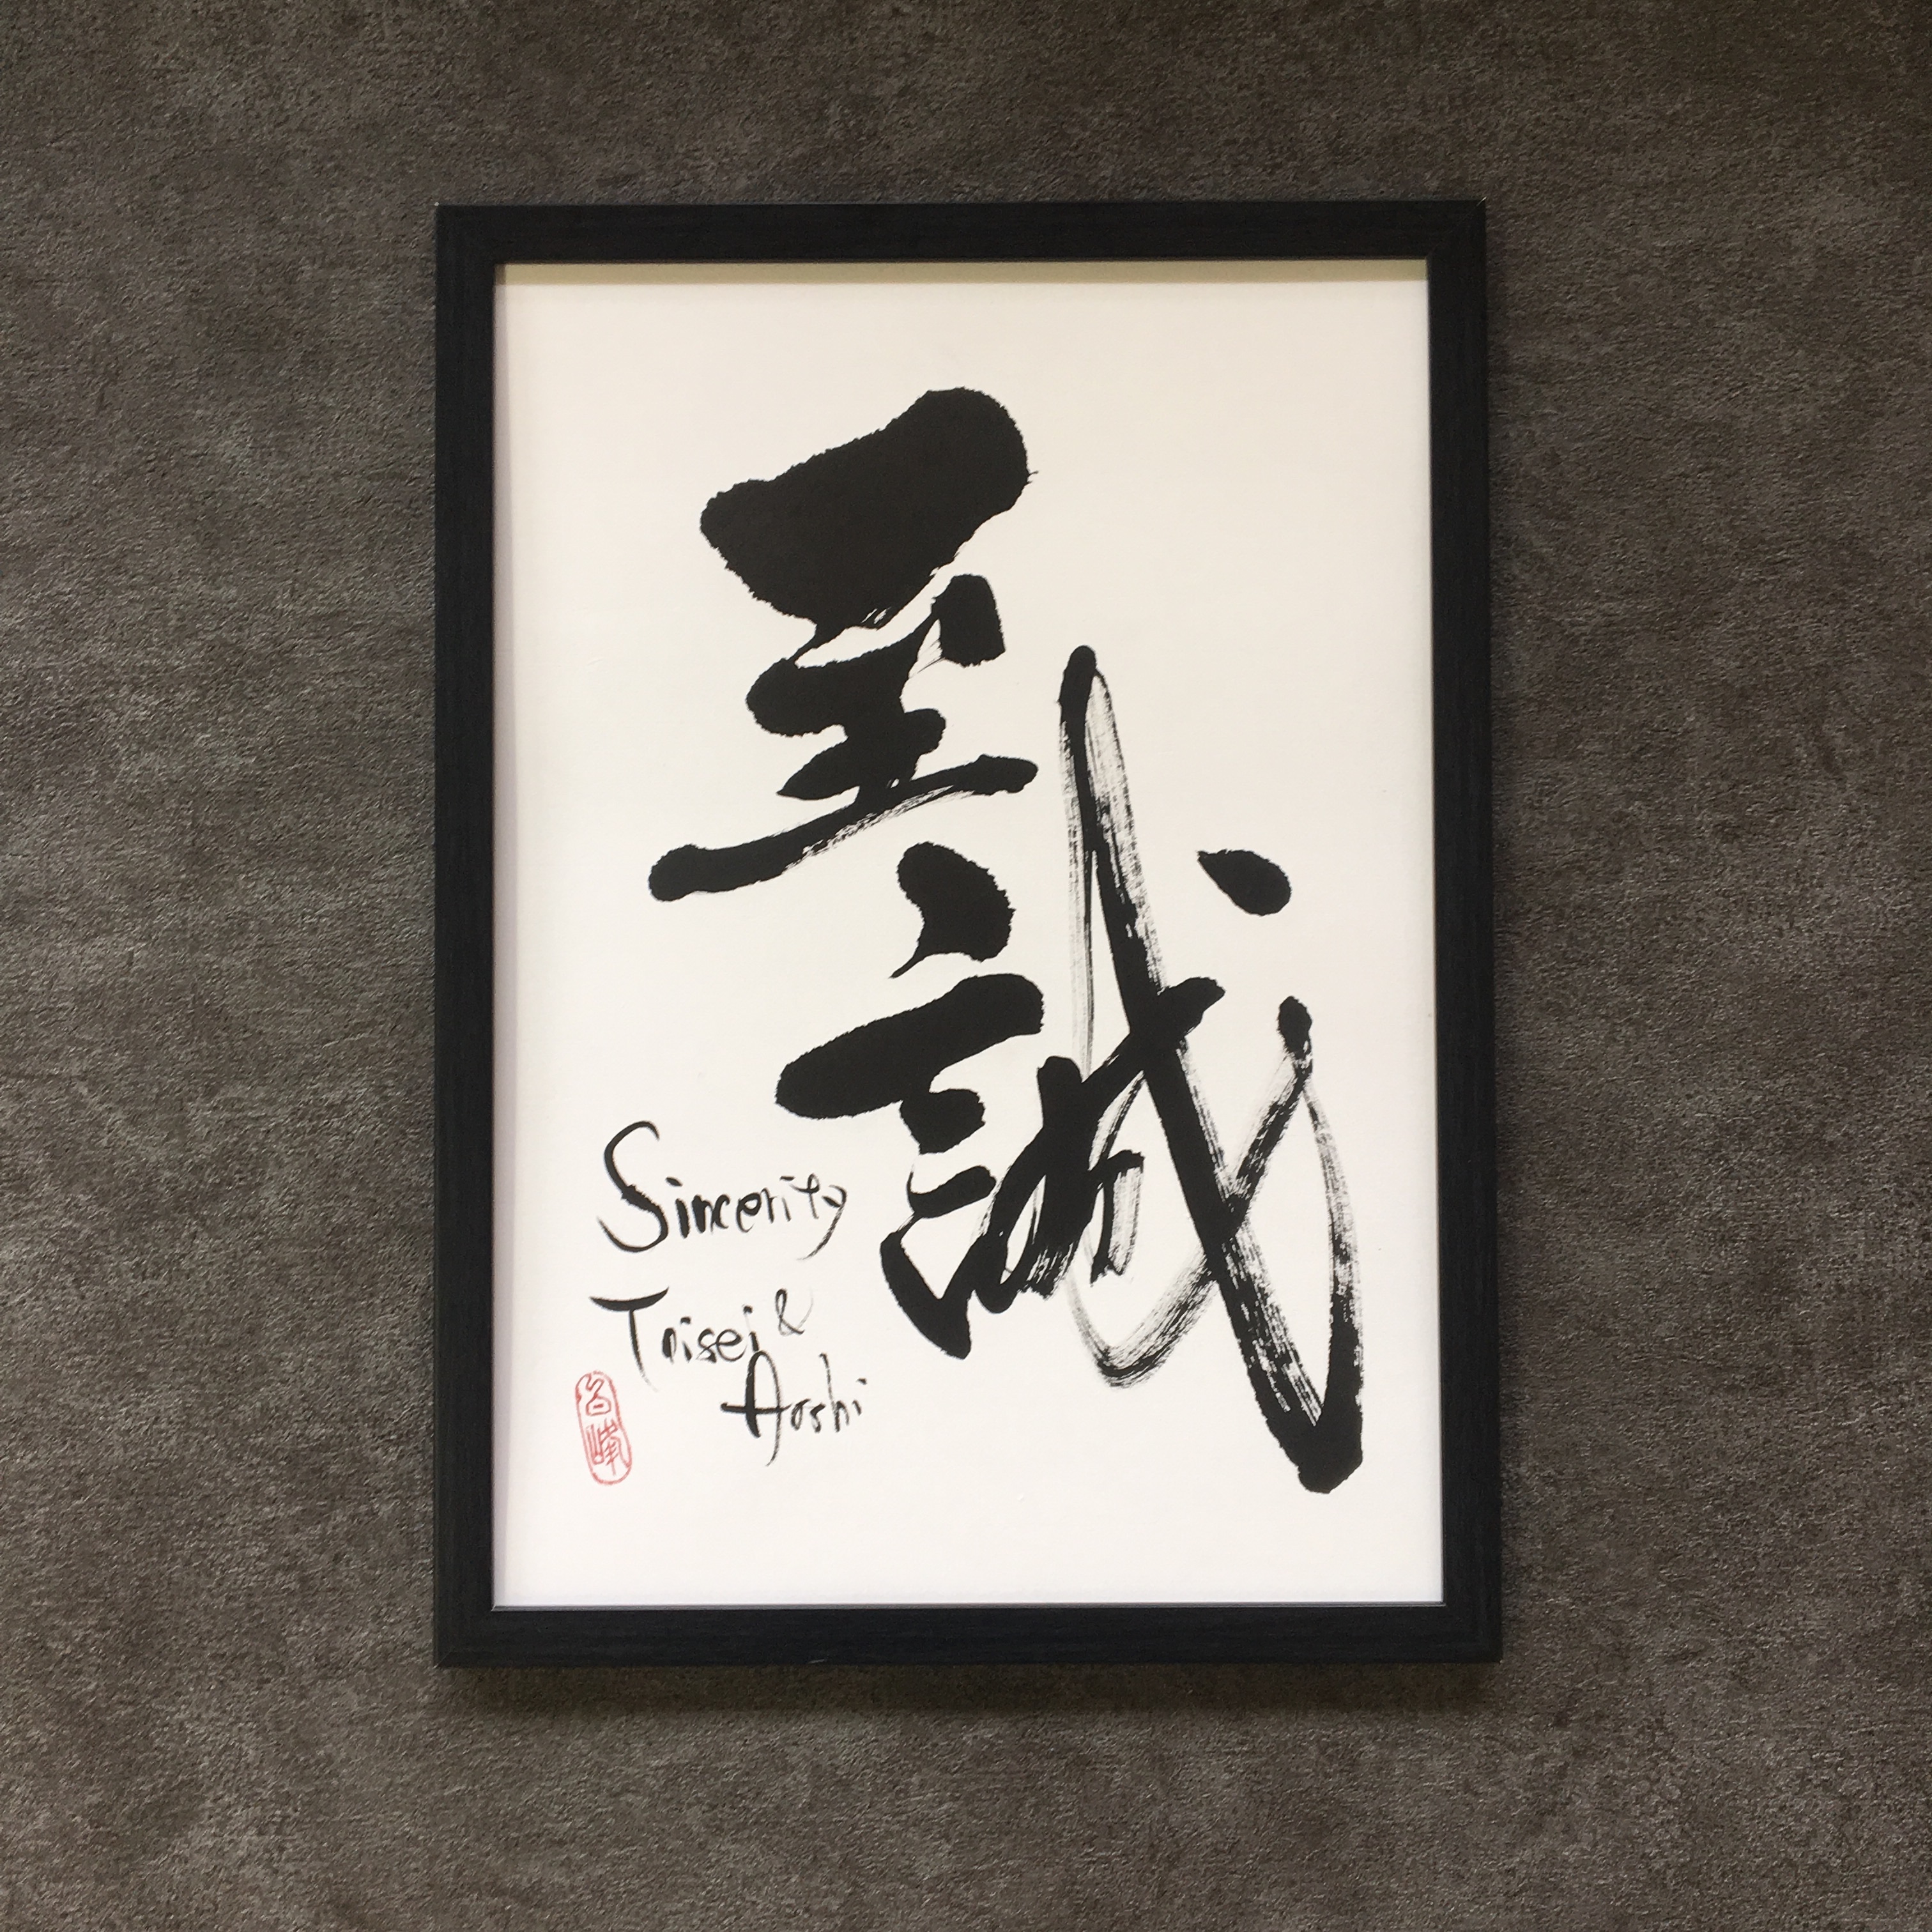 至誠
Sincerity
Taisei &
Aoshi